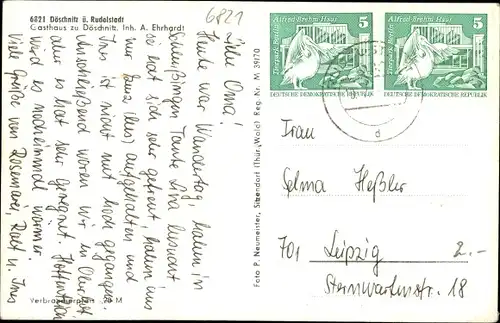 6821 Döschnitz ü. Rudolstadt
Gasthaus zu Döschnitz. Inh. A. Ehrhardt
6821
Liebe Oma!
Heute war Wandertag, haben in
Tante Lisa besucht
sie hat sich sehr gefreut, haben uns
nur kurz aufgehalten und
Ines ist nicht mit hoch gegangen.
Anschließend waren wir in
aber es hat sehr geregnet. Hoffentlich
wird es nocheinmal warmer
Viele Grüße von Rosemari, Ralf u. Ines
Verbraucherpreis M
Foto P. Neumeister, Sitzendorf (Thür. Wald) Reg. Nr. M 39/70
Alfred-Brehm-Haus 5
Tierpark Berlin
DEUTSCHE DEMOKRATISCHE REPUBLIK
Alfred-Brehm-Haus 5
Tierpark Berlin
DEUTSCHE DEMOKRATISCHE REPUBLIK
d
Frau
Selma Heßler
701 Leipzig 2.-
Sternwartenstr. 18